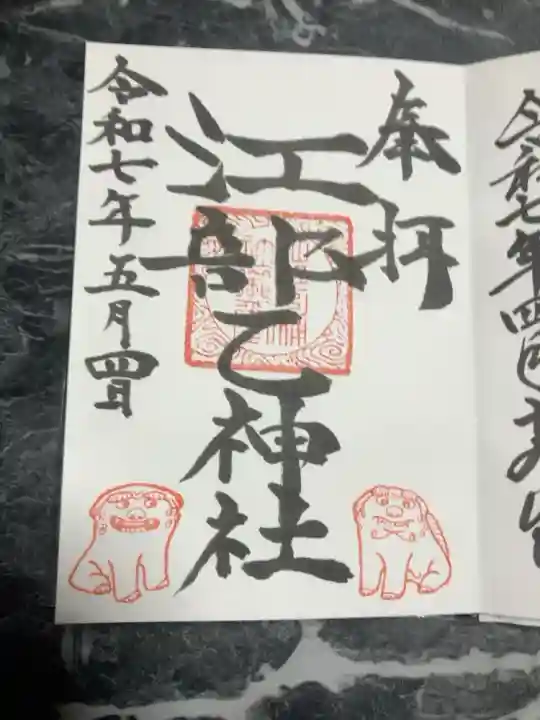 奉拝
江部乙神社
令和七年五月四日
令和七年四月